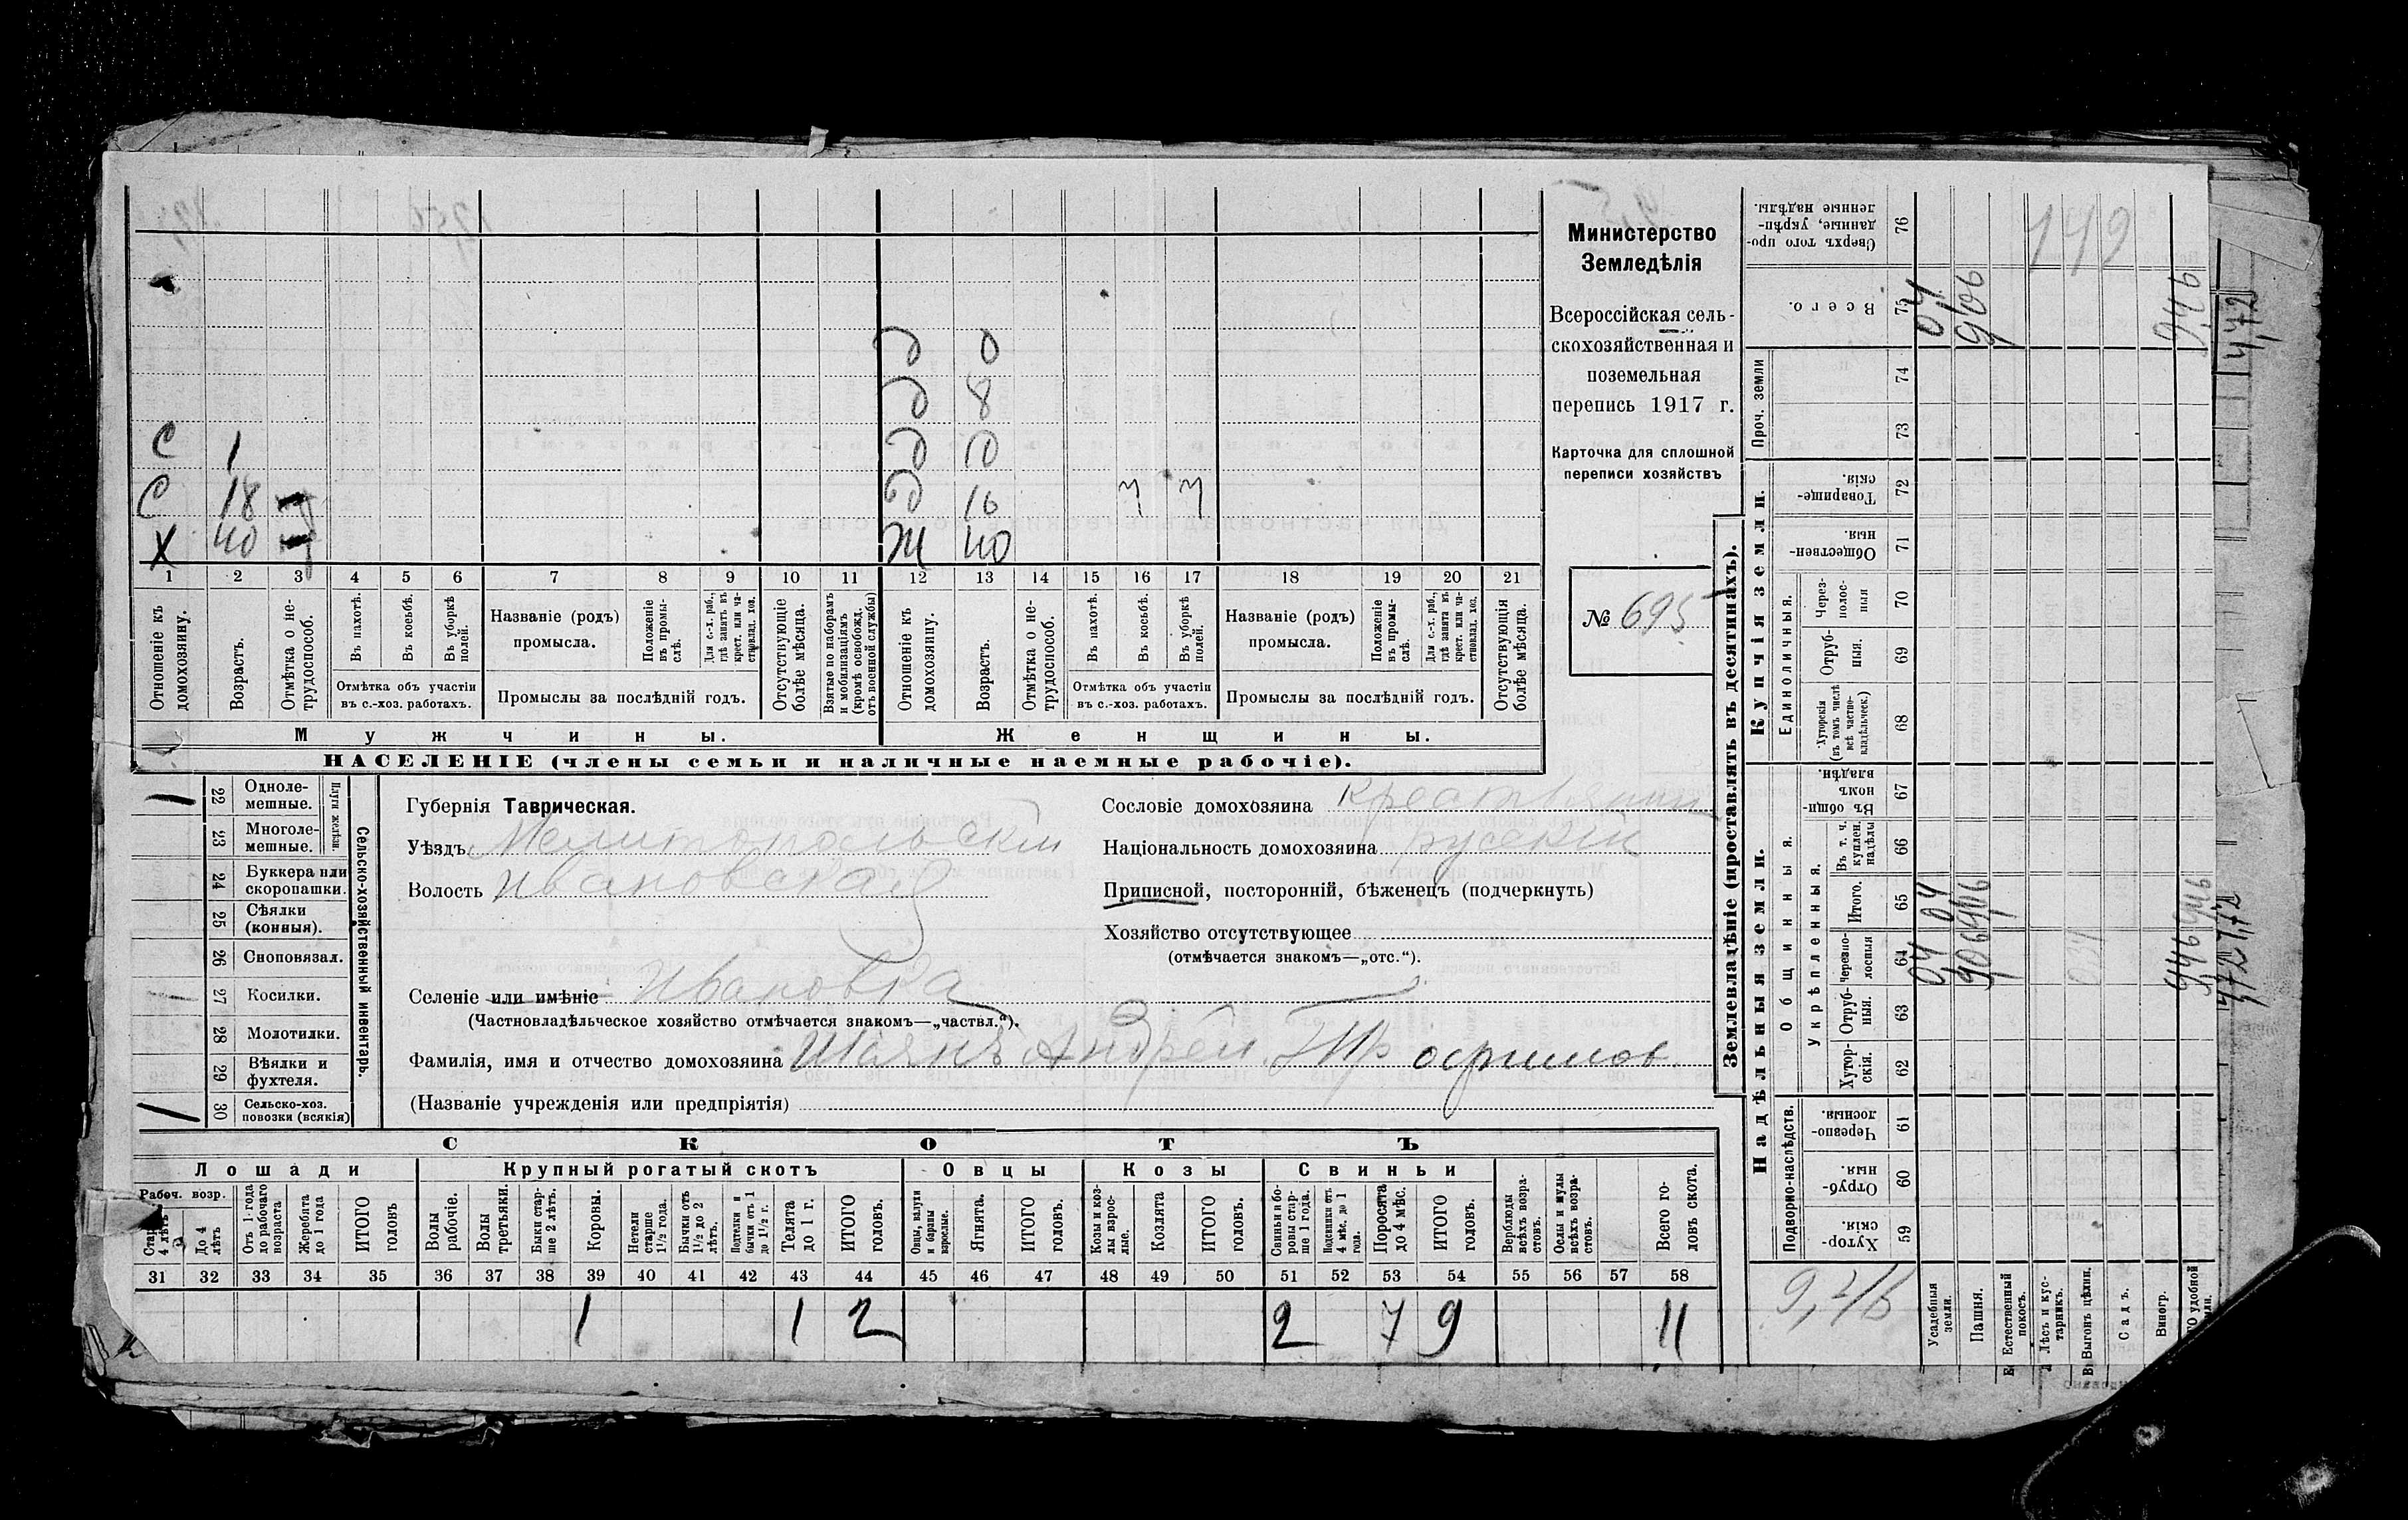 С 1
С 18
Х 40
д 0
д 8
д 10
д 16
Ж 40
1 2 3 4 5 6 7 8 9 10 11 12 13 14 15 16 17 18 19 20 21
Отношеніе къ домохозяину.
Возрастъ.
Отмѣтка о нетрудоспособ.
Въ пахотѣ.
Въ косьбѣ.
Въ уборкѣ полей.
Отмѣтка объ участіи
въ с.-хоз. работахъ.
Названіе (родъ)
промысла.
Положеніе въ промыслѣ.
Для с.-х. раб., гдѣ занятъ въ крест. или частновлад. хоз.
Промыслы за послѣдній годъ.
Отсутствующіе болѣе мѣсяца.
Взятые по наборамъ и мобилизаціямъ (кромѣ освобожд. отъ военной службы)
Отношеніе къ домохозяину.
Возрастъ.
Отмѣтка о нетрудоспособ.
Въ пахотѣ.
Въ косьбѣ.
Въ уборкѣ полей.
Отмѣтка объ участіи
въ с.-хоз. работахъ.
Названіе (родъ)
промысла.
Положеніе въ промыслѣ.
Для с.-х. раб., гдѣ занята въ крест. или частновлад. хоз.
Промыслы за послѣдній годъ.
Отсутствующія болѣе мѣсяца.
Мужчины.
Женщины.
НАСЕЛЕНІЕ (члены семьи и наличные наемные рабочіе).
Министерство
Земледѣлія
Всероссійская сель-
скохозяйственная и
поземельная
перепись 1917 г.
Карточка для сплошной
переписи хозяйствъ
№ 695
Сельско-хозяйственный инвентарь.
Плуги желѣзн.
22 Одноле-
мешные.
23 Многоле-
мешные.
24 Буккера или
скоропашки.
25 Сѣялки
(конныя).
26 Сноповязал.
27 Косилки.
28 Молотилки.
29 Вѣялки и
фухтеля.
30 Сельско-хоз.
повозки (всякія)
Губернія Таврическая.
Уѣздъ Мелитопольскій
Волость Ивановская
Селеніе или имѣніе Ивановка
(Частновладѣльческое хозяйство отмѣчается знакомъ—„частвл.“).
Фамилія, имя и отчество домохозяина Шаянъ Андрей
(Названіе учрежденія или предпріятія)
Сословіе домохозяина Крестьянин
Національность домохозяина русскій
Приписной, посторонній, бѣженецъ (подчеркнуть)
Хозяйство отсутствующее
(отмѣчается знакомъ—„отс.“).
СКОТЪ
Лошади
Крупный рогатый скотъ
Овцы
Козы
Свиньи
Рабоч. возр.
До 4 лѣтъ
Отъ 1 года до рабочаго возраста
Жеребята до 1 года
ИТОГО головъ
Волы рабочіе.
Волы третьяки.
Быки старше 2 лѣтъ.
Коровы.
Нетели старше 1½ года.
Бычки отъ 1½ до 2 лѣтъ.
Подтелки и бычки отъ 1 до 1½ г.
Телята до 1 г.
ИТОГО головъ.
Овцы, валухи и бараны взрослые.
Ягнята.
ИТОГО головъ.
Козы и козлы взрослые.
Козлята
ИТОГО головъ.
Свиньи и боровы старше 1 года.
Подсвинки отъ 4 мѣс. до 1 года.
Поросята до 4 мѣс.
ИТОГО головъ.
Верблюды всѣхъ возрастовъ.
Ослы и мулы всѣхъ возрастовъ.
Всего головъ скота.
31 32 33 34 35 36 37 38 39 40 41 42 43 44 45 46 47 48 49 50 51 52 53 54 55 56 57 58
1 1 2 2 7 9 11
Землевладѣніе (проставлять въ десятинахъ).
Надѣльныя земли.
Купчія земли.
Проч. земли
Подворно-наслѣдств.
Общинныя.
Укрѣпленныя.
Единоличныя.
Сверхъ того проданные, укрѣпленные надѣлы. 76
Всего. 75
74
73
Товарищескія. 72
Общественныя. 71
Черезполосныя 70
Отрубныя. 69
Хуторскія (въ томъ числѣ всѣ частновладѣльческ.) 68
Въ общинномъ владѣн. 67
Въ т. ч. куплен. надѣлы 66
Итого. 65
Черезполосныя 64
Отрубныя. 63
Хуторскія. 62
Черезполосныя. 61
Отрубныя. 60
Хуторскія. 59
Усадебныя земли.
Пашня.
Естественный покосъ.
Лѣсъ и кустарникъ.
Выгонъ цѣлин.
Садъ.
Виногр.
149
04
9,06
9,46
4,72
9,46